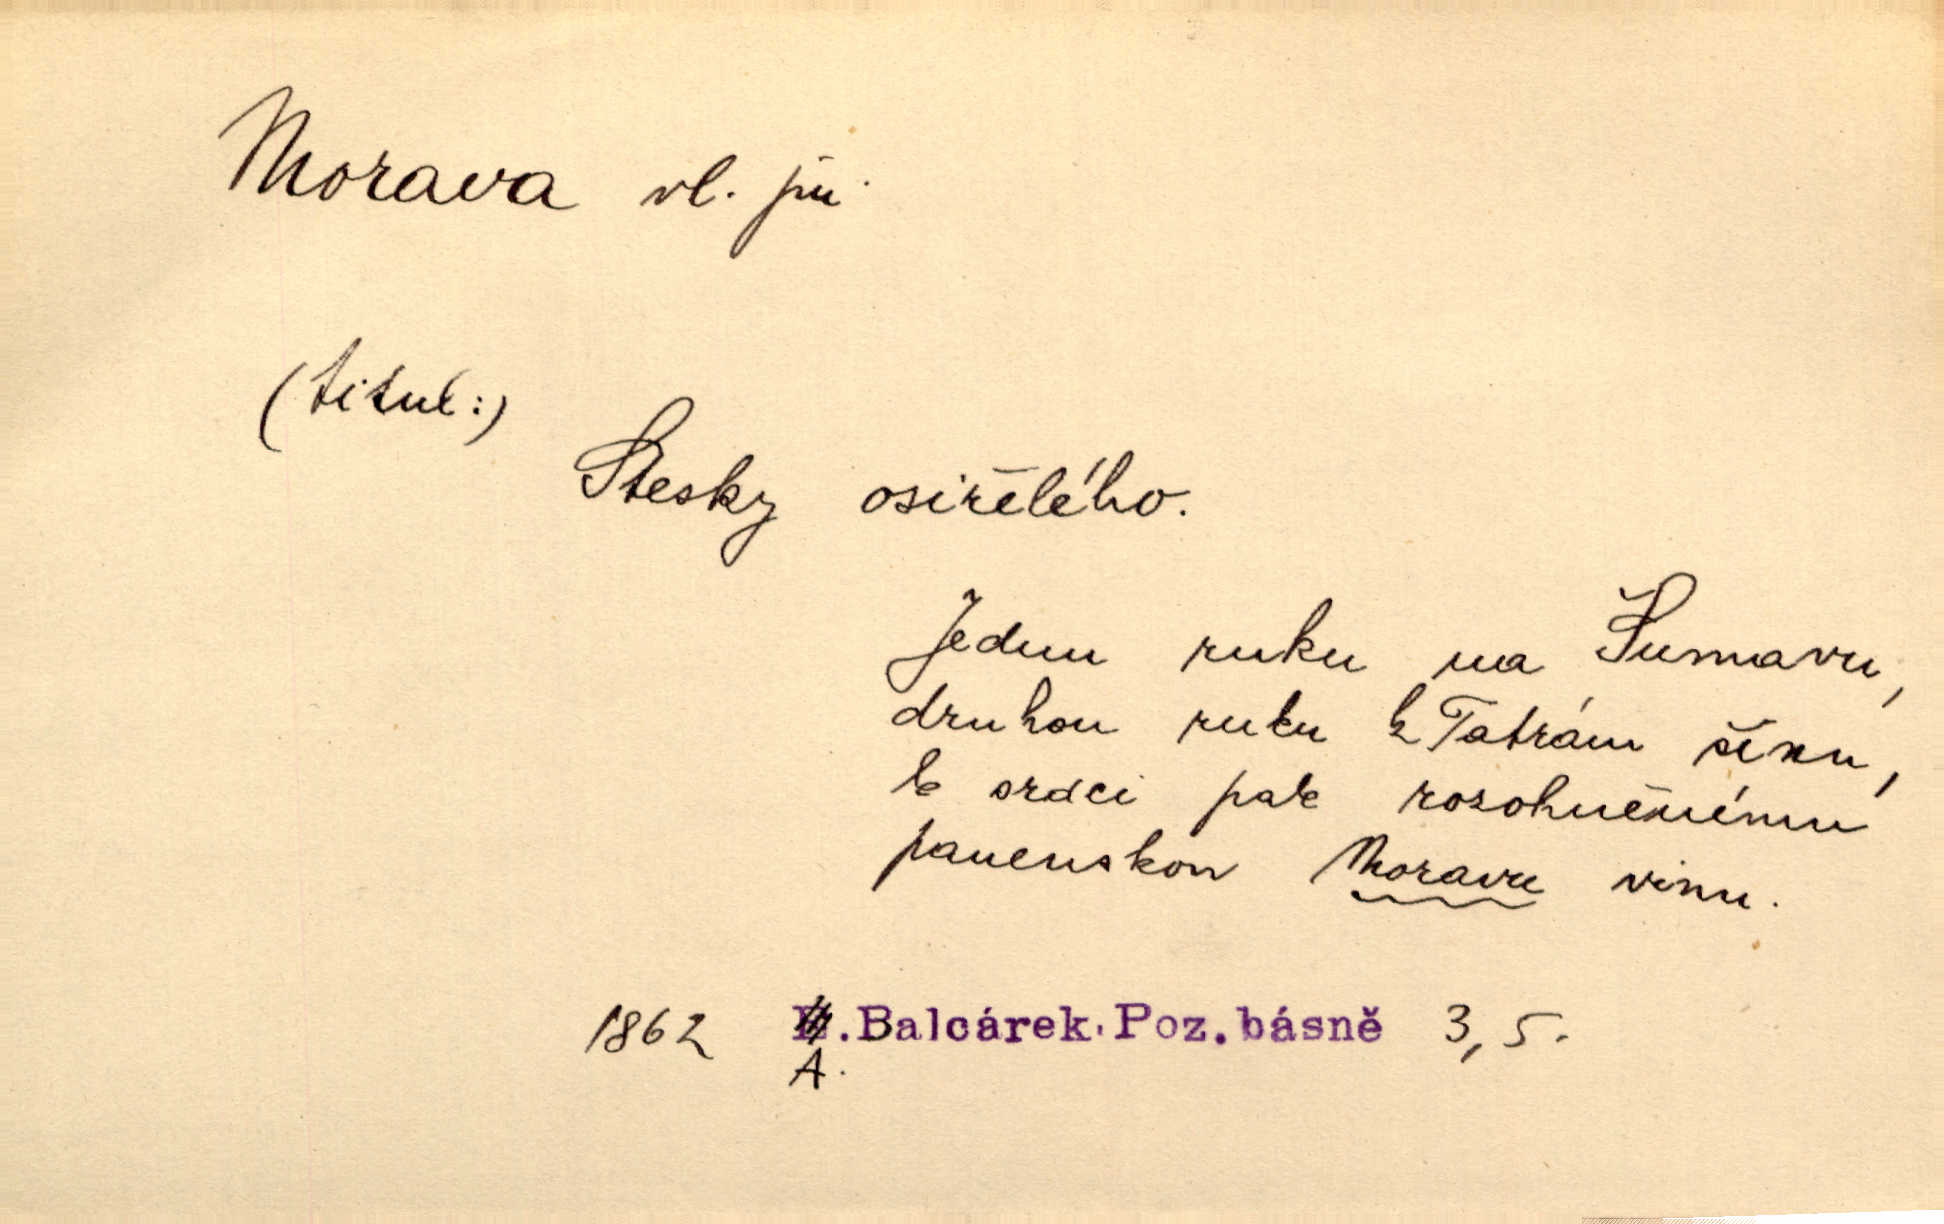 Morava vl. jm.
(titul:)
Stesky osiřelého.
Jednu ruku na Šumavu,
druhou ruku k Tatrám šinu,
k srdci pak rozohněnému
panenskou Moravu vinu.
1862 .Balcárek. Poz.básně 3, 5.
A.